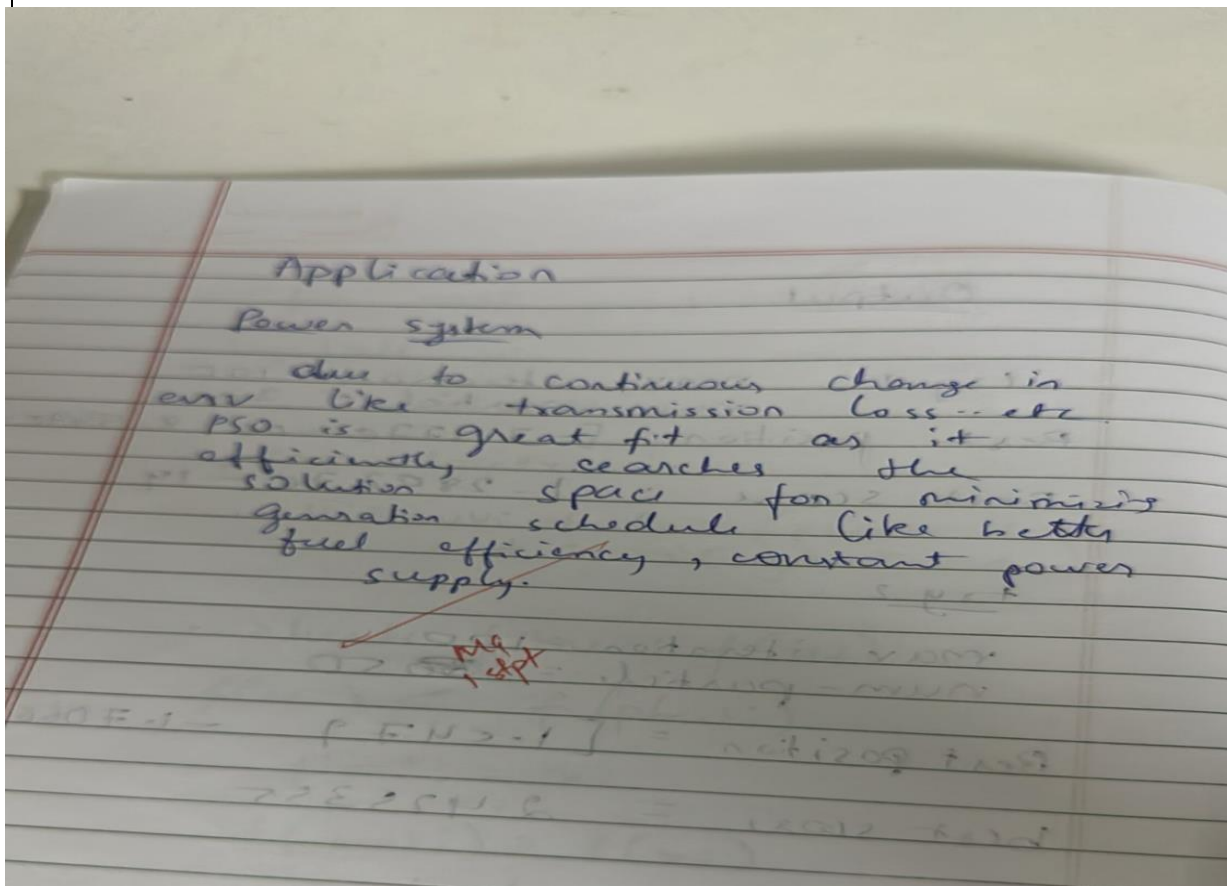 Application
Power system
due to continuous change in
env like transmission loss.. etc
PSO is great fit as it
efficiently searches the
solution space for minimizing
genration schedule like better
fuel efficiency, constant power
supply.